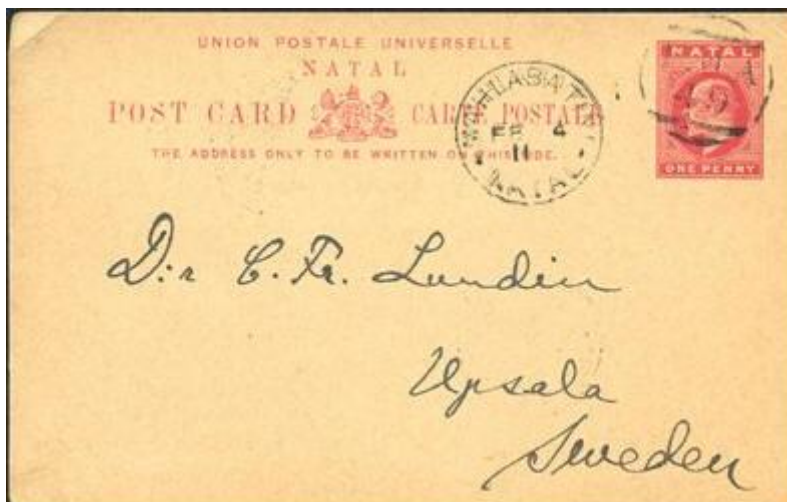 UNION POSTALE UNIVERSELLE
NATAL
POST CARD CARTE POSTALE
THE ADDRESS ONLY TO BE WRITTEN ON THIS SIDE.
NATAL
ONE PENNY
FE 4
11
NATAL
D:r C. Fr. Lundin
Upsala
Sweden